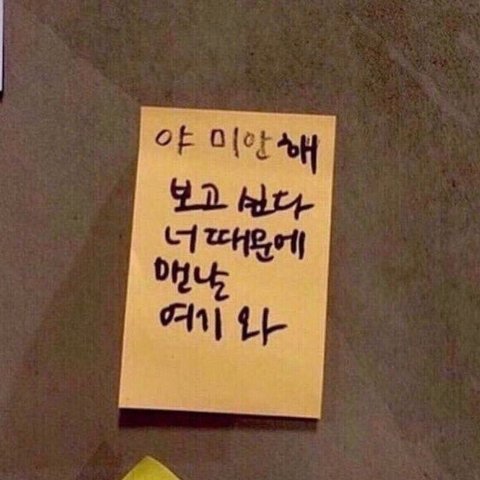 야 미안해
보고싶다
너 때문에
맨날
여기 와